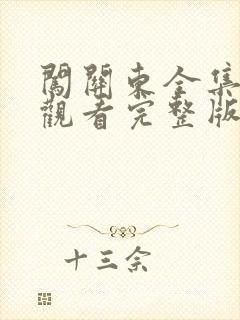 闖關東全集
觀看完整版
十三余